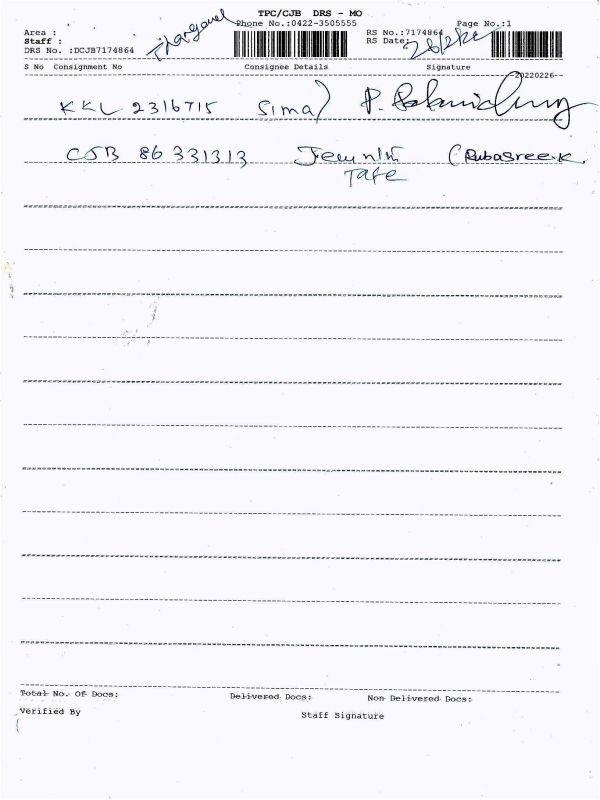 TPC/CJB DRS - MO
Area : Phone No.:0422-3505555 Page No.:1
Staff : RS No.:7174864
DRS No. :DCJB7174864 RS Date:
S No Consignment No Consignee Details Signature
20220226--
KKL 2316715 Simal
CJB 86 331313 (Rubasree.K.
Tafe
Total No. Of Docs: Delivered Docs: Non Delivered Docs:
Verified By Staff Signature